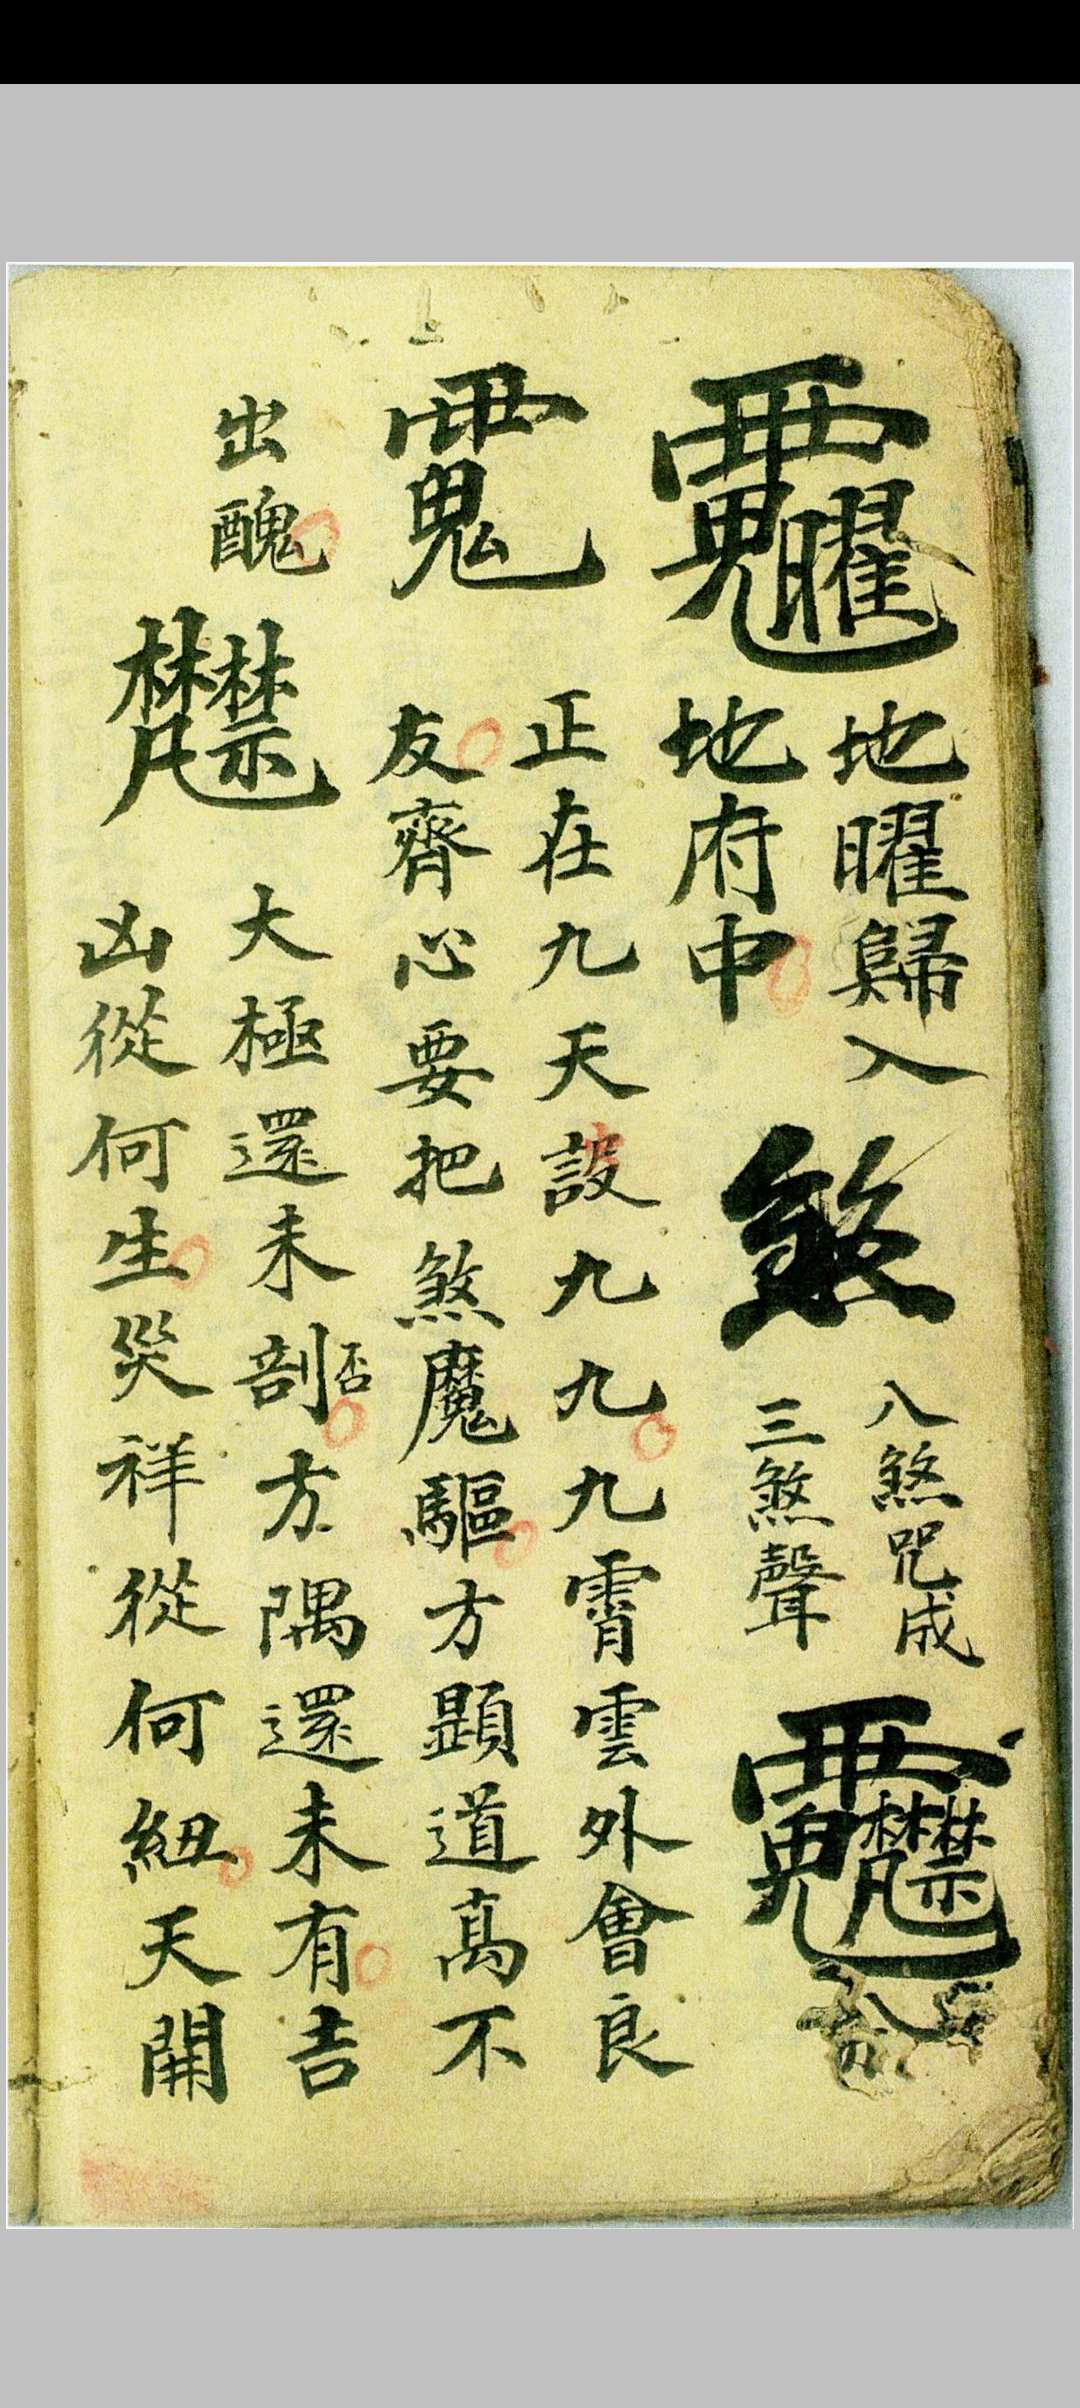 地曜歸入
地府中
煞
八煞咒成
三煞聲
正在九天設九九九霄雲外會良
友齊心要把煞魔驅方顕道高不
出醜
大極還未剖否方隅還未有吉
凶從何生災祥從何紐天開